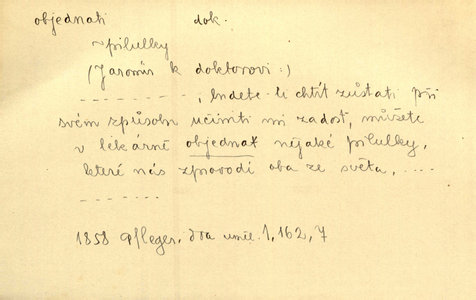 objednati dok.
~pilulky
(Jaromír k doktorovi:)
– – – – – – –, budete-li chtít zůstati při
svém způsobu učiniti mi zadost, můžete
v lékárně objednat nějaké pilulky,
které nás zprovodí oba ze světa, ....
– – – – – – – –
1858 Pfleger, Dva uměl. 1, 162, 7